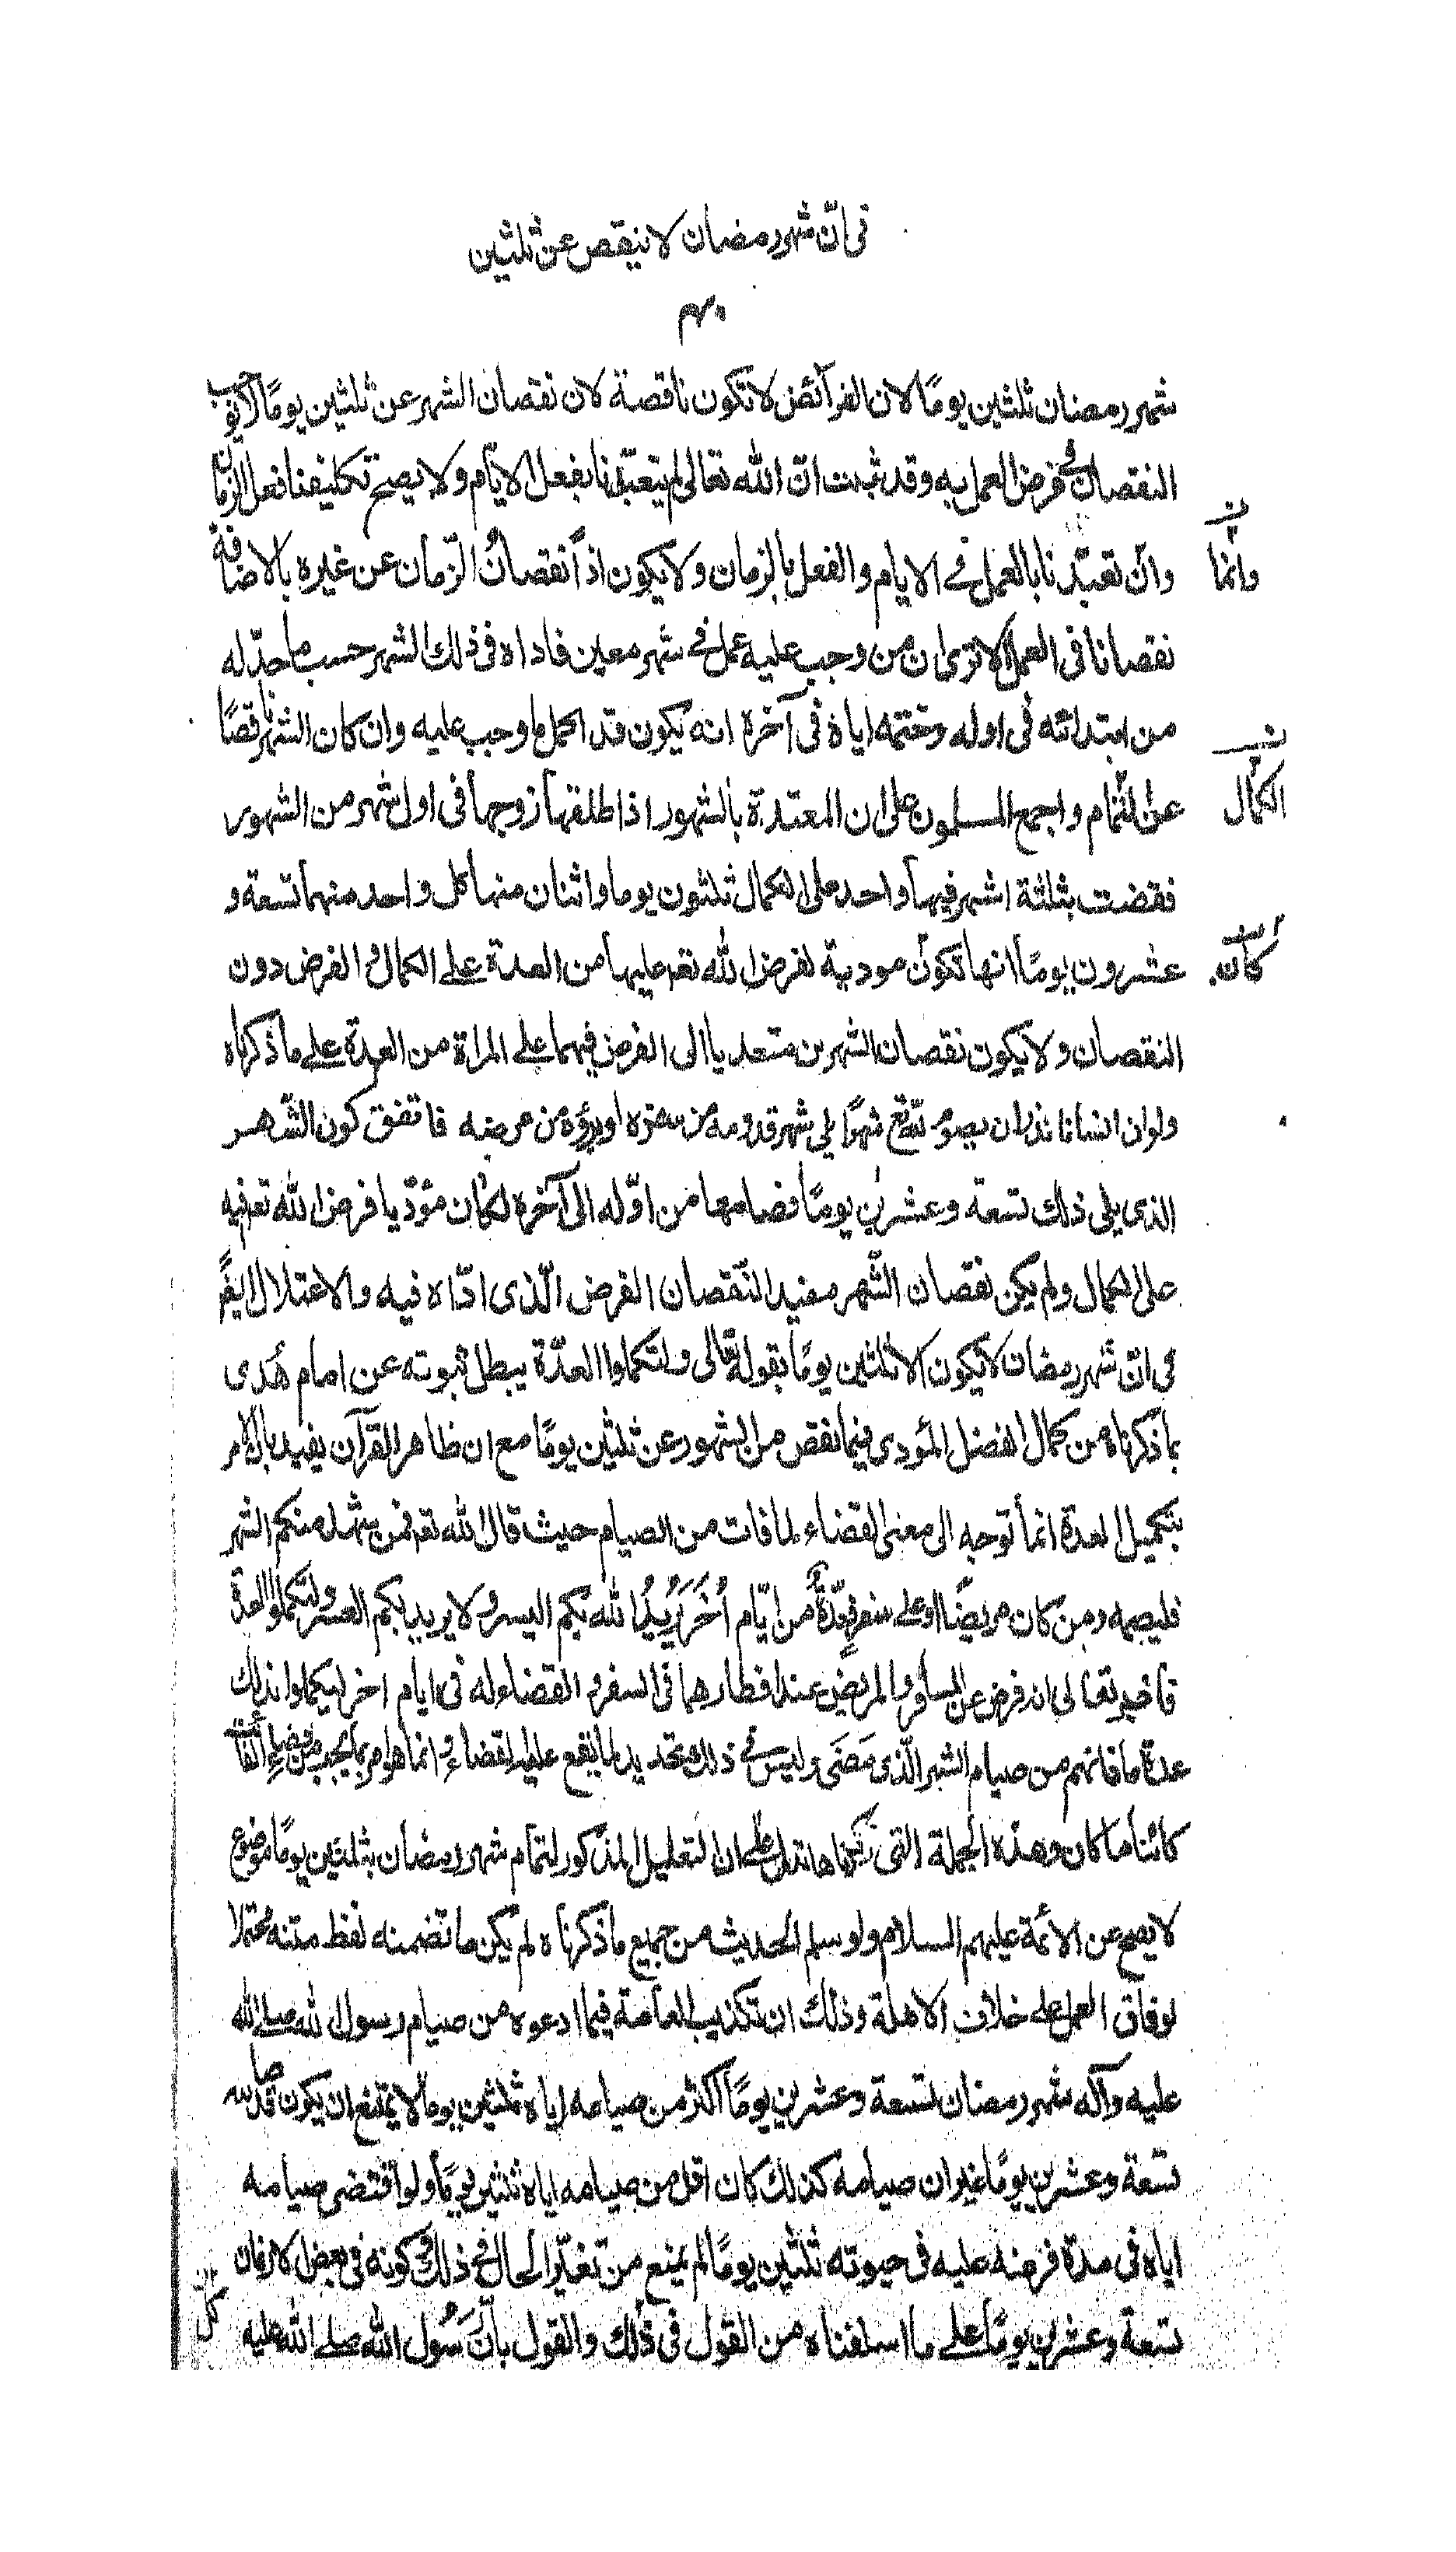 في انّ شهر رمضان لا ينقص عن ثلثين
شهر رمضان ثلثين يومًا لان الفرآئض لا تكون ناقصة لان نقصان الشهر عن ثلثين يومًا لا يوجب
النقصان في فرض العمل به وقد ثبت انّ الله تعالى لم يتعبّدنا بفعل الايّام ولا يصح تكليفنا فعل الزمان
وانّ تعبّدنا بالعمل في الايام والفعل بالزمان ولا يكون اذاً نقصانُ الزّمان عن غيره بالاضافة
وانّما
نقصانا في العمل الا ترى ان من وجب عليه عمل في شهر معين فاداه في ذلك الشهر حسب ما حدّ له
من ابتدائه في اوله وختمه اياه في آخره انه يكون قد اكمل ما وجب عليه وان كان الشهر ناقصًا
عن التّمام واجمع المسلمون على ان المعتدة بالشهور اذا طلقها زوجها في اول شهر من الشهور
الكمال
فقضت بثلثة اشهر فيها واحد على الكمال ثلثون يوما واثنان منها كل واحد منهما تسعة و
عشرون يومًا انها تكون مودية لفرض الله تعه عليها من العدة على الكمال و الفرض دون
كان
النقصان ولا يكون نقصان الشهرين متعديا الى الفرض فيهما على المراة من العدة على ما ذكرناه
ولو ان انسانا نذر ان يصوم لله تع شهرًا يلي شهر قدومه من سفره او برؤه من مرضه فاتفق كون الشّهر
الذى يلى ذلك تسعة وعشرين يومًا فصامها من اوّله الى آخره لكان مؤدّيا فرض الله تعه فيه
على الكمال ولم يكن نقصان الشّهر مفيدا لنقصان الفرض الّذى ادّاه فيه والاعتلال ايضًا
في انّ شهر رمضان لا يكون الا ثلثين يومًا بقوله تعالى ولتكملوا العدّة يبطل ثبوته عن امام هُدى
بما ذكرناه من كمال الفضل المؤدى فيما نقص من الشهور عن ثلثين يومًا مع ان ظاهر القرآن يفيد بان الامر
بتكميل العدة انما توجه الى معنى القضاء لما فات من الصيام حيث قال الله تعه فمن شهد منكم الشهر
فليصمه ومن كان مريضًا او على سفر فعدّةٌ من ايّام اُخَرَ يُريدُ الله بكم اليسر ولا يريد بكم العسر ولتكملوا العدة
فاخبر تعالى انه فرض عن المسافر والمريض عند افطارهما في السفر و القضاء له في ايام اخر ليكملوا بذلك
عدة ما فاتهم من صيام الشهر الّذى مَضَى وليس في ذلك تحديد لما يقع عليه القضاء و انما هو امر بما يجب من قضاء الفائت
كائنا ما كان وهذه الجملة التى ذكرناها تدل على ان التعليل المذكور لتمام شهر رمضان بثلثين يومًا موضوع
لا يصح عن الائمة عليهم السلام ولو سلم الحديث من جميع ما ذكرناه لم يكن ما تضمنه لفظ متنه محتملا
لوفاق العمل على خلاف الاهلة وذلك ان تكذيب العامة فيما ادعوه من صيام رسول الله صلى الله
عليه وآله شهر رمضان تسعة وعشرين يومًا اكثر من صيامه اياه ثلثين يوما لا يمتنع ان يكون قد صامه
تسعة وعشرين يومًا غير ان صيامه كذلك كان اقل من صيامه اياه ثلثين يومًا ولو اقتضى صيامه
اياه في مدّة فرضه عليه في حيوته ثلثين يومًا لم يمنع من تغيّر الحال في ذلك و كونه في بعض الازمان
تسعة وعشرين يومًا على ما اسلفناه من القول في ذلك والقول بان رسُول الله صلى الله عليه